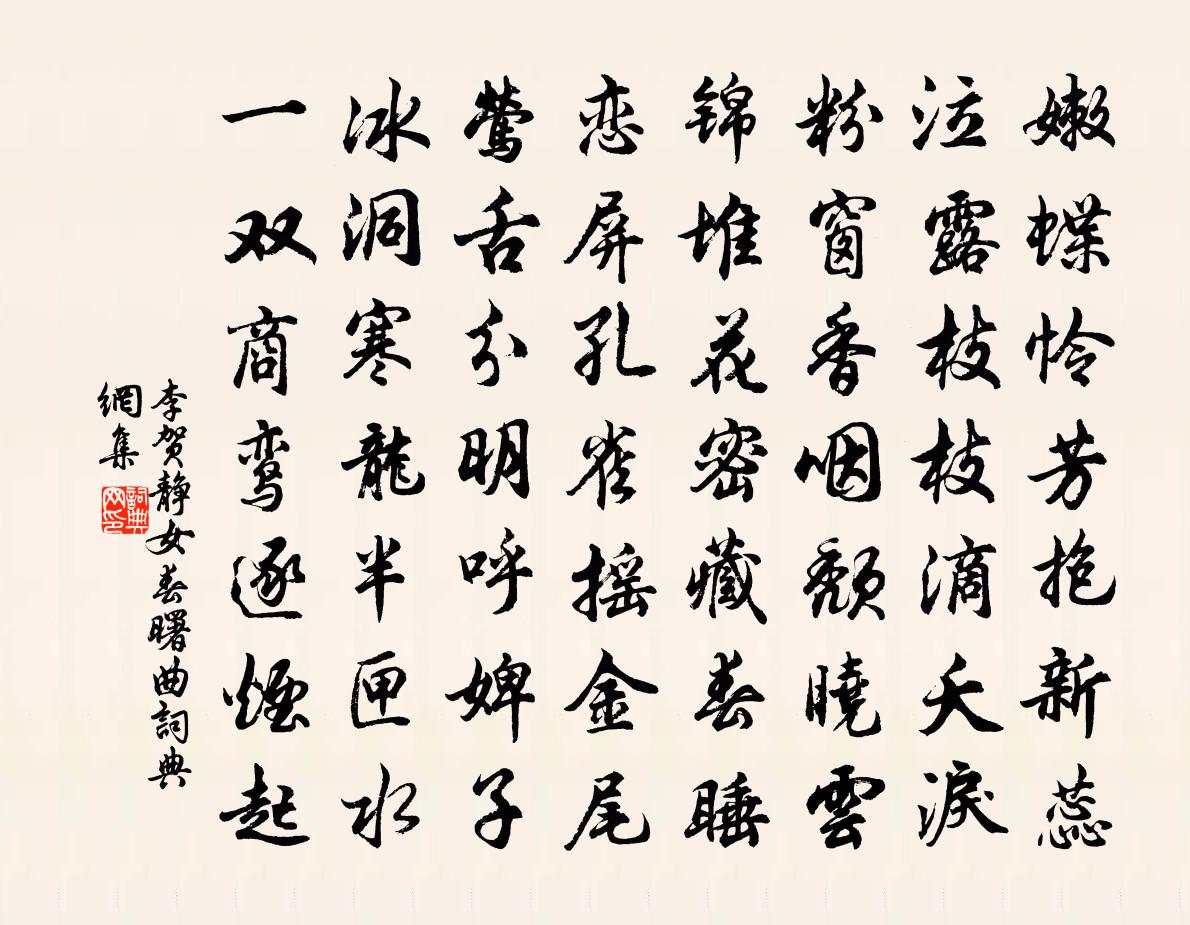 嫩蝶怜芳抱新蕊
泣露枝枝滴夭淚
粉窗香咽頽曉雲
锦堆花密藏春睡
恋屏孔雀摇金尾
莺舌分明呼婢子
冰洞寒龍半匣水
一双商鸾逐煙起
李贺静女春曙曲詞典
網集
詞典
网印